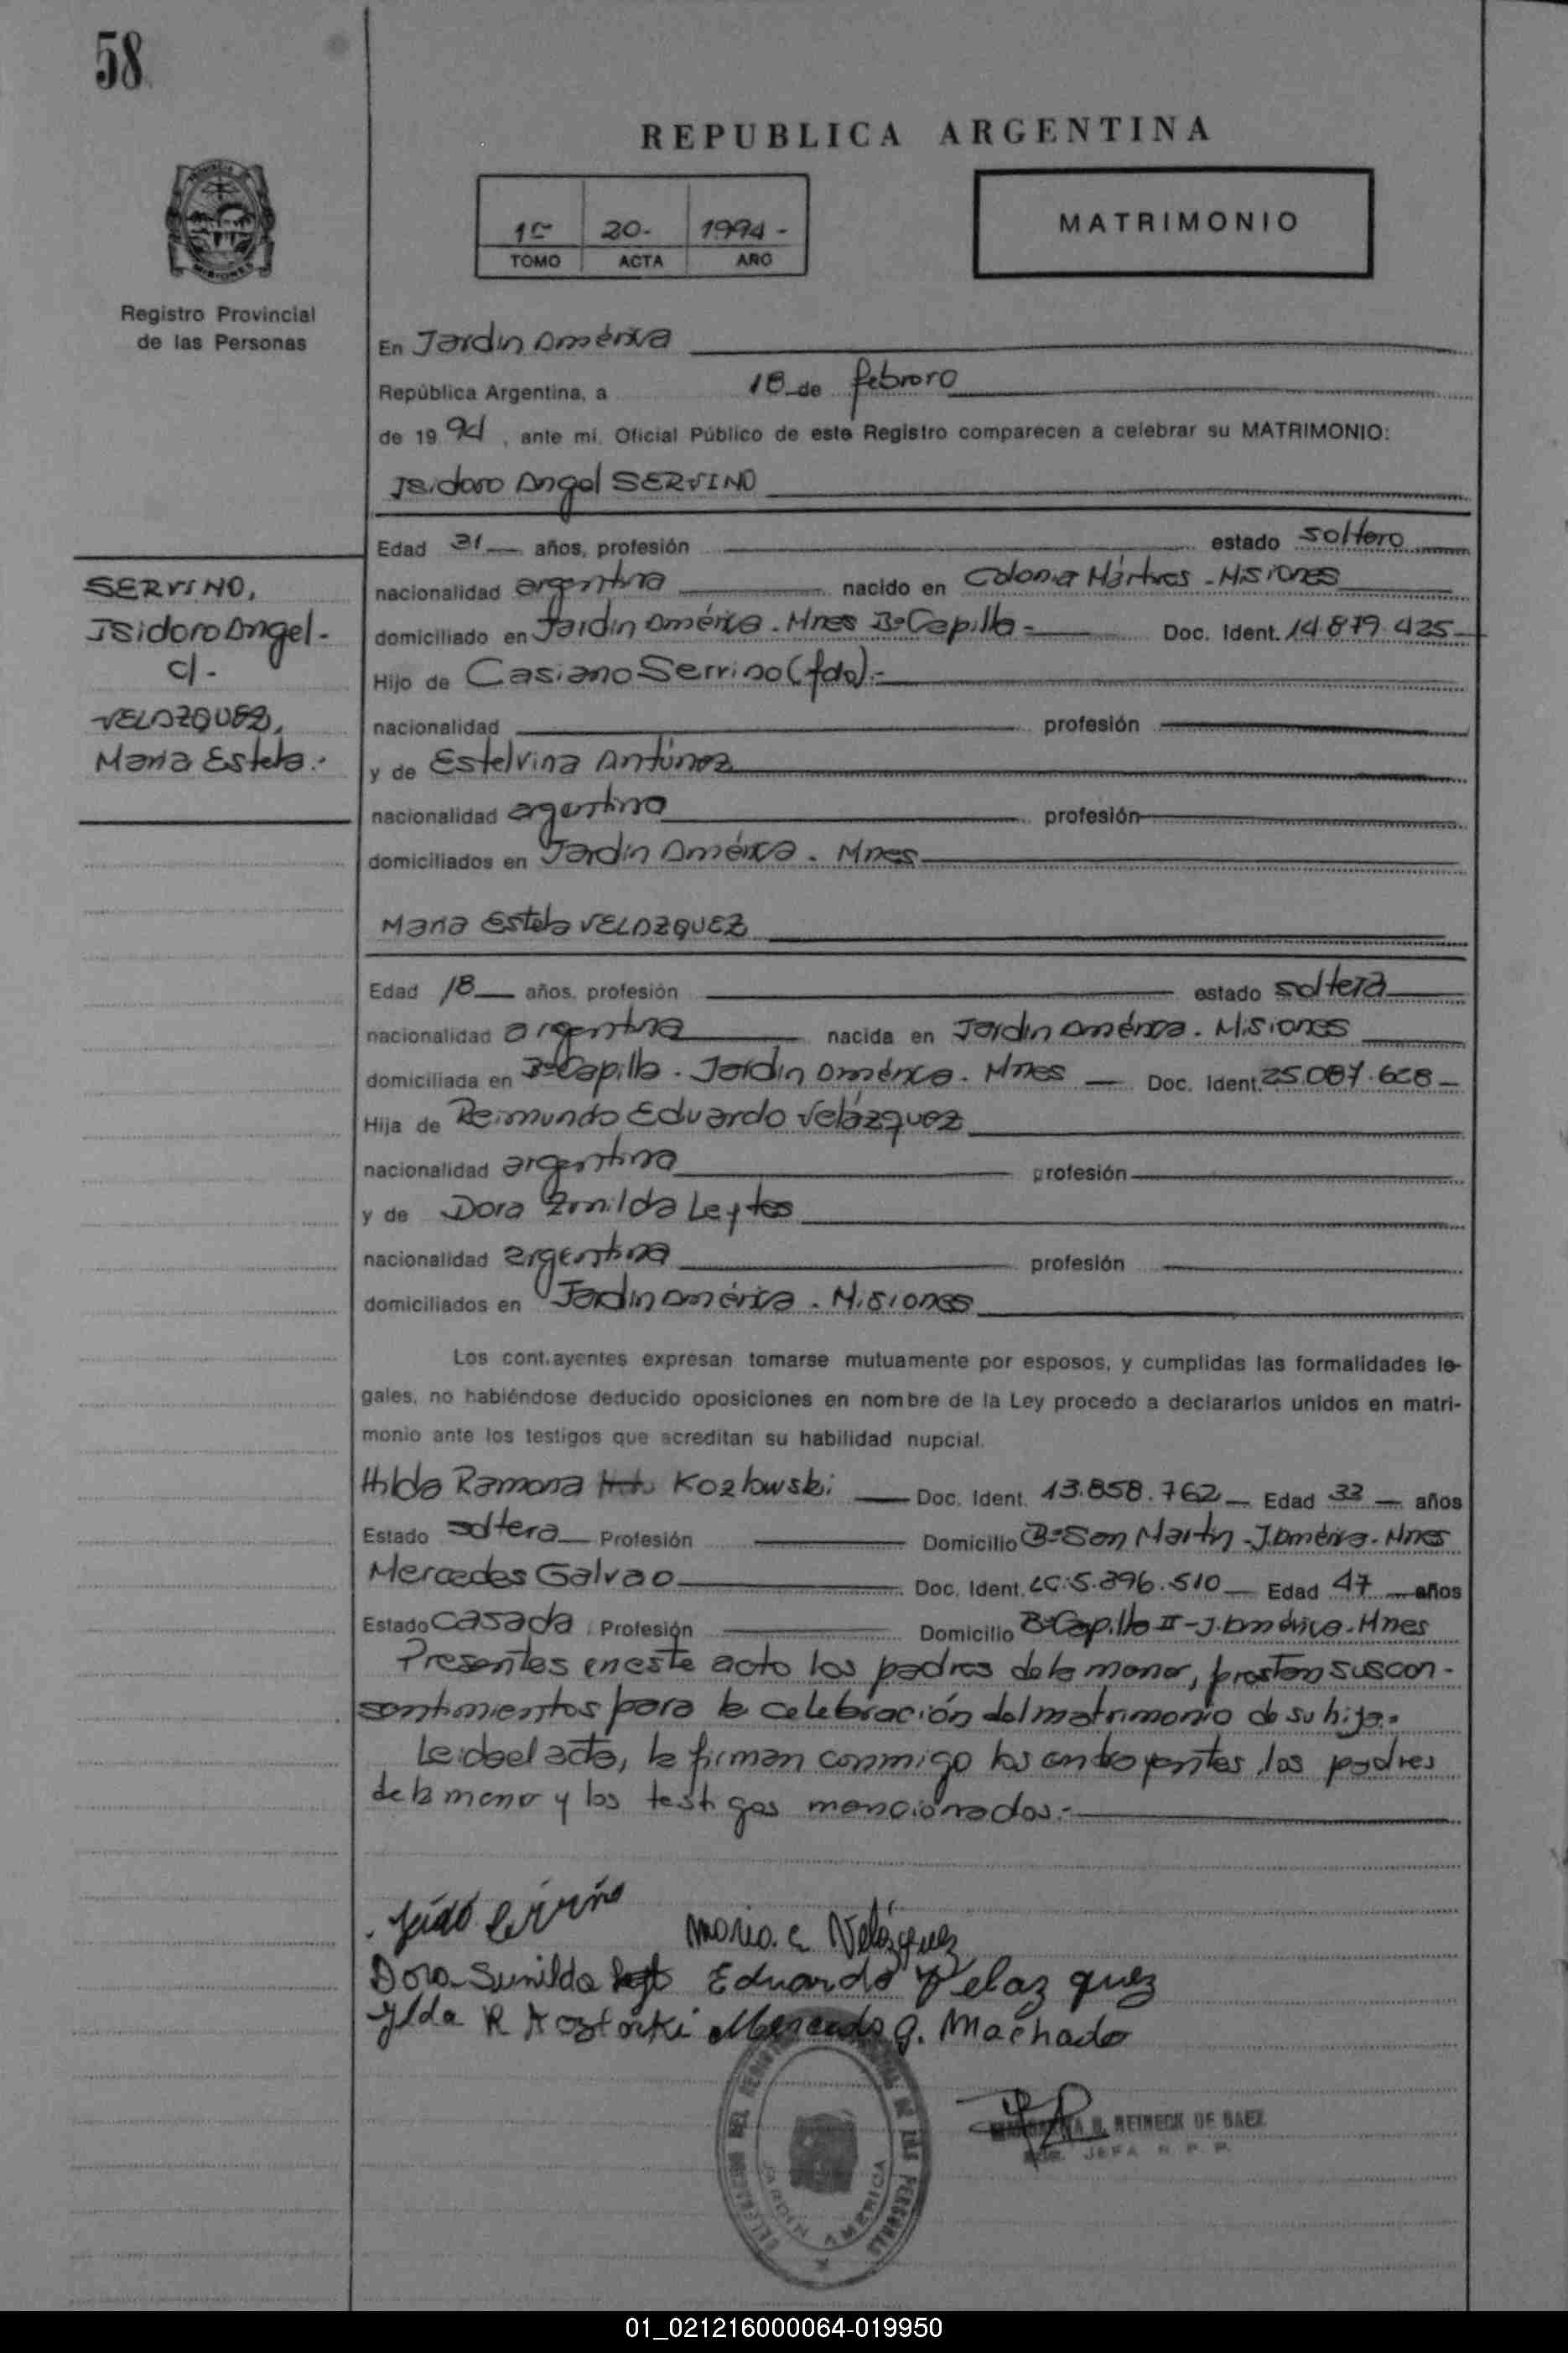 58
REPUBLICA ARGENTINA
1º 20- 1994-
TOMO ACTA AÑO
MATRIMONIO
Registro Provincial
de las Personas
En Jardín América
República Argentina, a 18 de febrero
de 19 94, ante mí, Oficial Público de este Registro comparecen a celebrar su MATRIMONIO:
Isidoro Angel SERVINO
Edad 31 años, profesión estado soltero
nacionalidad argentina nacido en Colonia Mártires - Misiones
domiciliado en Jardín América - Mnes Bº Capilla - Doc. Ident. 14.879.425
Hijo de Casiano Servino (fdo).-
nacionalidad profesión
y de Estelvina Antúnez
nacionalidad argentina profesión
domiciliados en Jardín América - Mnes
SERVINO,
Isidoro Angel -
c/ -
VELAZQUEZ,
Maria Estela.-
Maria Estela VELAZQUEZ
Edad 18 años, profesión estado soltera
nacionalidad argentina nacida en Jardín América - Misiones
domiciliada en Bº Capilla - Jardín América - Mnes Doc. Ident. 25.087.628
Hija de Reimundo Eduardo Velázquez
nacionalidad argentina profesión
y de Dora Leytes
nacionalidad argentina profesión
domiciliados en Jardín América - Misiones
Los contrayentes expresan tomarse mutuamente por esposos, y cumplidas las formalidades le-
gales, no habiéndose deducido oposiciones en nombre de la Ley procedo a declararlos unidos en matri-
monio ante los testigos que acreditan su habilidad nupcial.
Hilda Ramona Kozlowski Doc. Ident. 13.858.762 Edad 33 años
Estado soltera Profesión Domicilio Bº San Martín - J. América - Mnes
Mercedes Galvao Doc. Ident. LC: 5.396.510 Edad 47 años
Estado casada Profesión Domicilio Bº Capilla II - J. América - Mnes
Presentes en este acto los padres de la menor, prestan sus con-
sentimientos para la celebración del matrimonio de su hija.-
Leida el acta, la firman conmigo los contrayentes, los padres
de la menor y los testigos mencionados.-
Maria. E Velázquez
Dora Eduardo Velazquez
Ylda R Mercedes G. Machado
REINECK DE BAEZ
JEFA R. P. P.
DEL REGISTRO DE LAS PERSONAS
JARDIN AMERICA
01_021216000064-019950